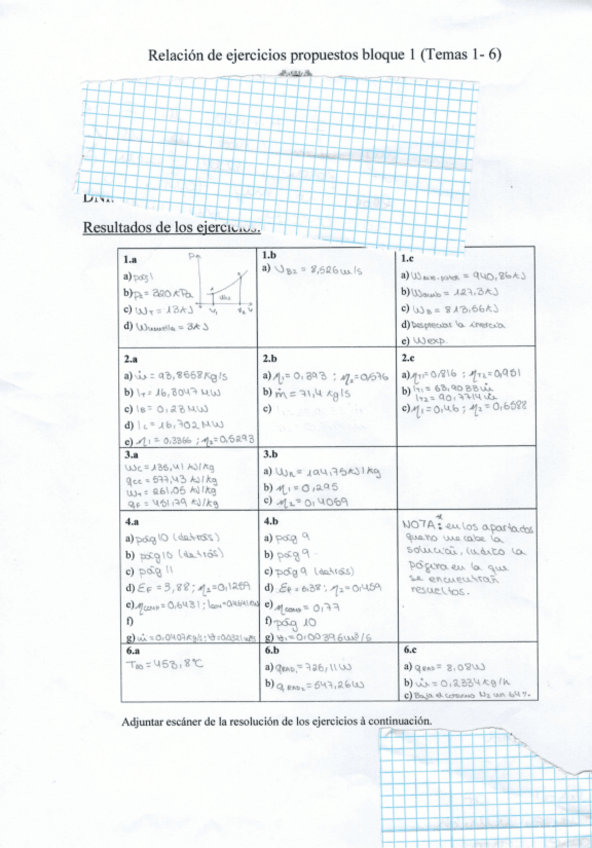 Relación de ejercicios propuestos bloque 1 (Temas 1- 6)
DNI:
Resultados de los ejercicios:
1.a
a) pág 1
b) p₂ = 320 kPa
c) W_T = 13 kJ
d) W_muelle = 3 kJ
1.b
a) V_B2 = 8,526 m/s
1.c
a) = 940,86 kJ
b) = 127,3 kJ
c) W_B = 813,56 kJ
d) Despreciar la inercia
e) W exp.
2.a
a) ṁ = 93,8558 kg/s
b) I_T = 16,8047 MW
c) I_B = 0,23 MW
d) I_C = 16,702 MW
e) η₁ = 0,3366 ; η₂ = 0,5293
2.b
a) η₁ = 0,393 ; η₂ = 0,576
b) ṁ = 71,4 kg/s
c)
2.c
a) η_T1 = 0,816 ; η_T2 = 0,951
b)
c) η₁ = 0,46 ; η₂ = 0,6588
3.a
W_C = 135,41 kJ/kg
q_CC = 577,43 kJ/kg
W_T = 261,05 kJ/kg
q_F = 451,79 kJ/kg
3.b
a) = 194,75 kJ/kg
b) η₁ = 0,295
c) η₂ = 0,4059
4.a
a) pág 10 (detrás)
b) pág 10 (detrás)
c) pág 11
d) E_F = 3,88 ; η₂ = 0,1259
e) = 0,6431 ;
f)
g) ṁ = 0,0407 kg/s ;
4.b
a) pág 9
b) pág 9
c) pág 9 (detrás)
d) E_F = 6,38 ; η₂ = 0,459
e) = 0,77
f) pág 10
g) = 0,00396 m³/s
NOTA: en los apartados
que no me cabe la
solución, indico la
página en la que
se encuentran
resueltos.
6.a
= 453,8ºC
6.b
a) q_RAD₁ = 726,11 W
b) q_RAD₂ = 547,26 W
6.c
a) q_RAD = 8,08 W
b) ṁ = 0,2334 kg/h
c) Baja el consumo N₂ un 64%
Adjuntar escáner de la resolución de los ejercicios à continuación.